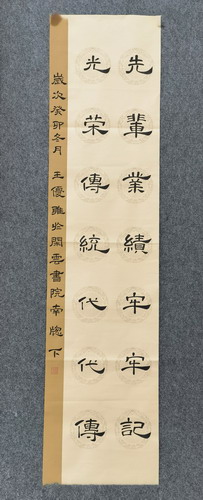 先輩業績牢牢記
光荣傳統代代傳
歲次癸卯冬月 王優雅於閑雲書院南牕下